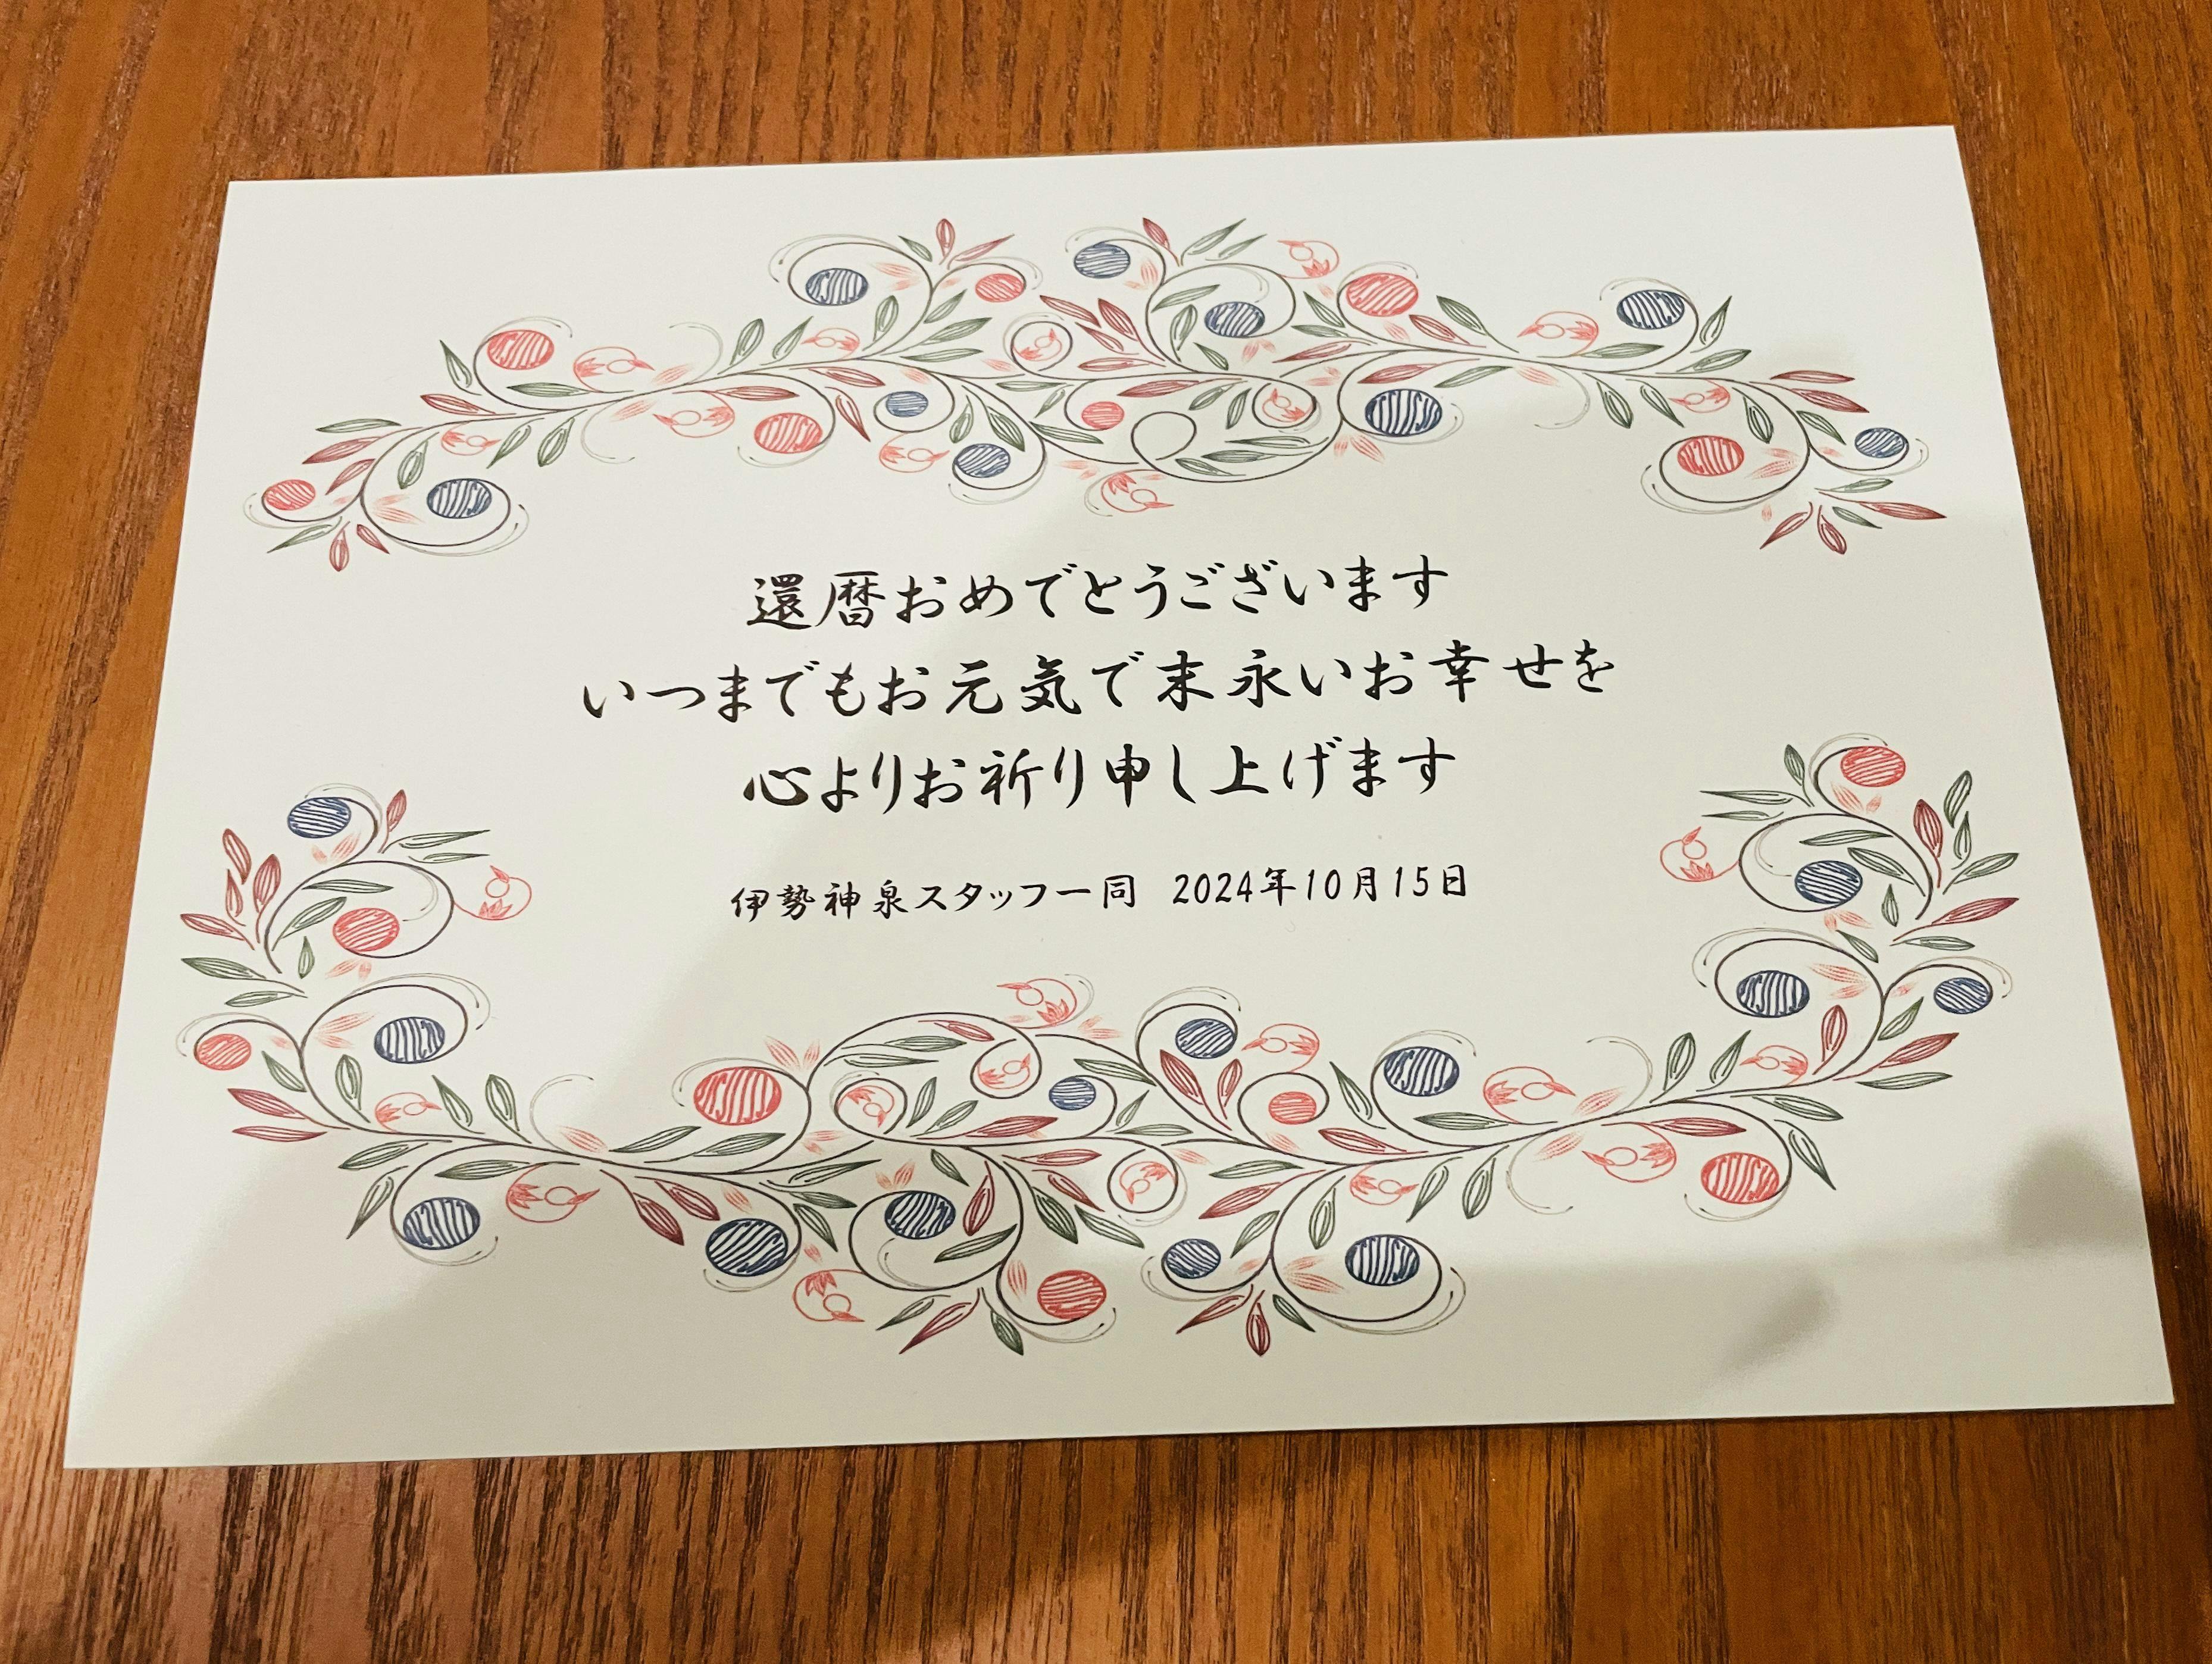 還暦おめでとうございます
いつまでもお元気で末永いお幸せを
心よりお祈り申し上げます
伊勢神泉スタッフ一同 2024年10月15日